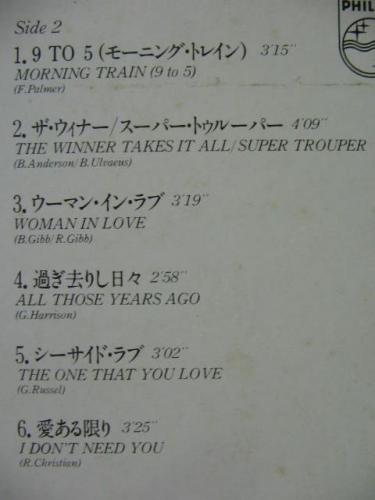 Side 2
PHIL
1. 9 TO 5 (モーニング・トレイン) 3'15"
MORNING TRAIN (9 to 5)
(F.Palmer)
2. ザ・ウィナー/スーパー・トゥルーパー 4'09"
THE WINNER TAKES IT ALL/SUPER TROUPER
(B.Anderson/B.Ulvaeus)
3. ウーマン・イン・ラブ 3'19"
WOMAN IN LOVE
(B.Gibb/R.Gibb)
4. 過ぎ去りし日々 2'58"
ALL THOSE YEARS AGO
(G.Harrison)
5. シーサイド・ラブ 3'02"
THE ONE THAT YOU LOVE
(G.Russel)
6. 愛ある限り 3'25"
I DON'T NEED YOU
(R.Christian)